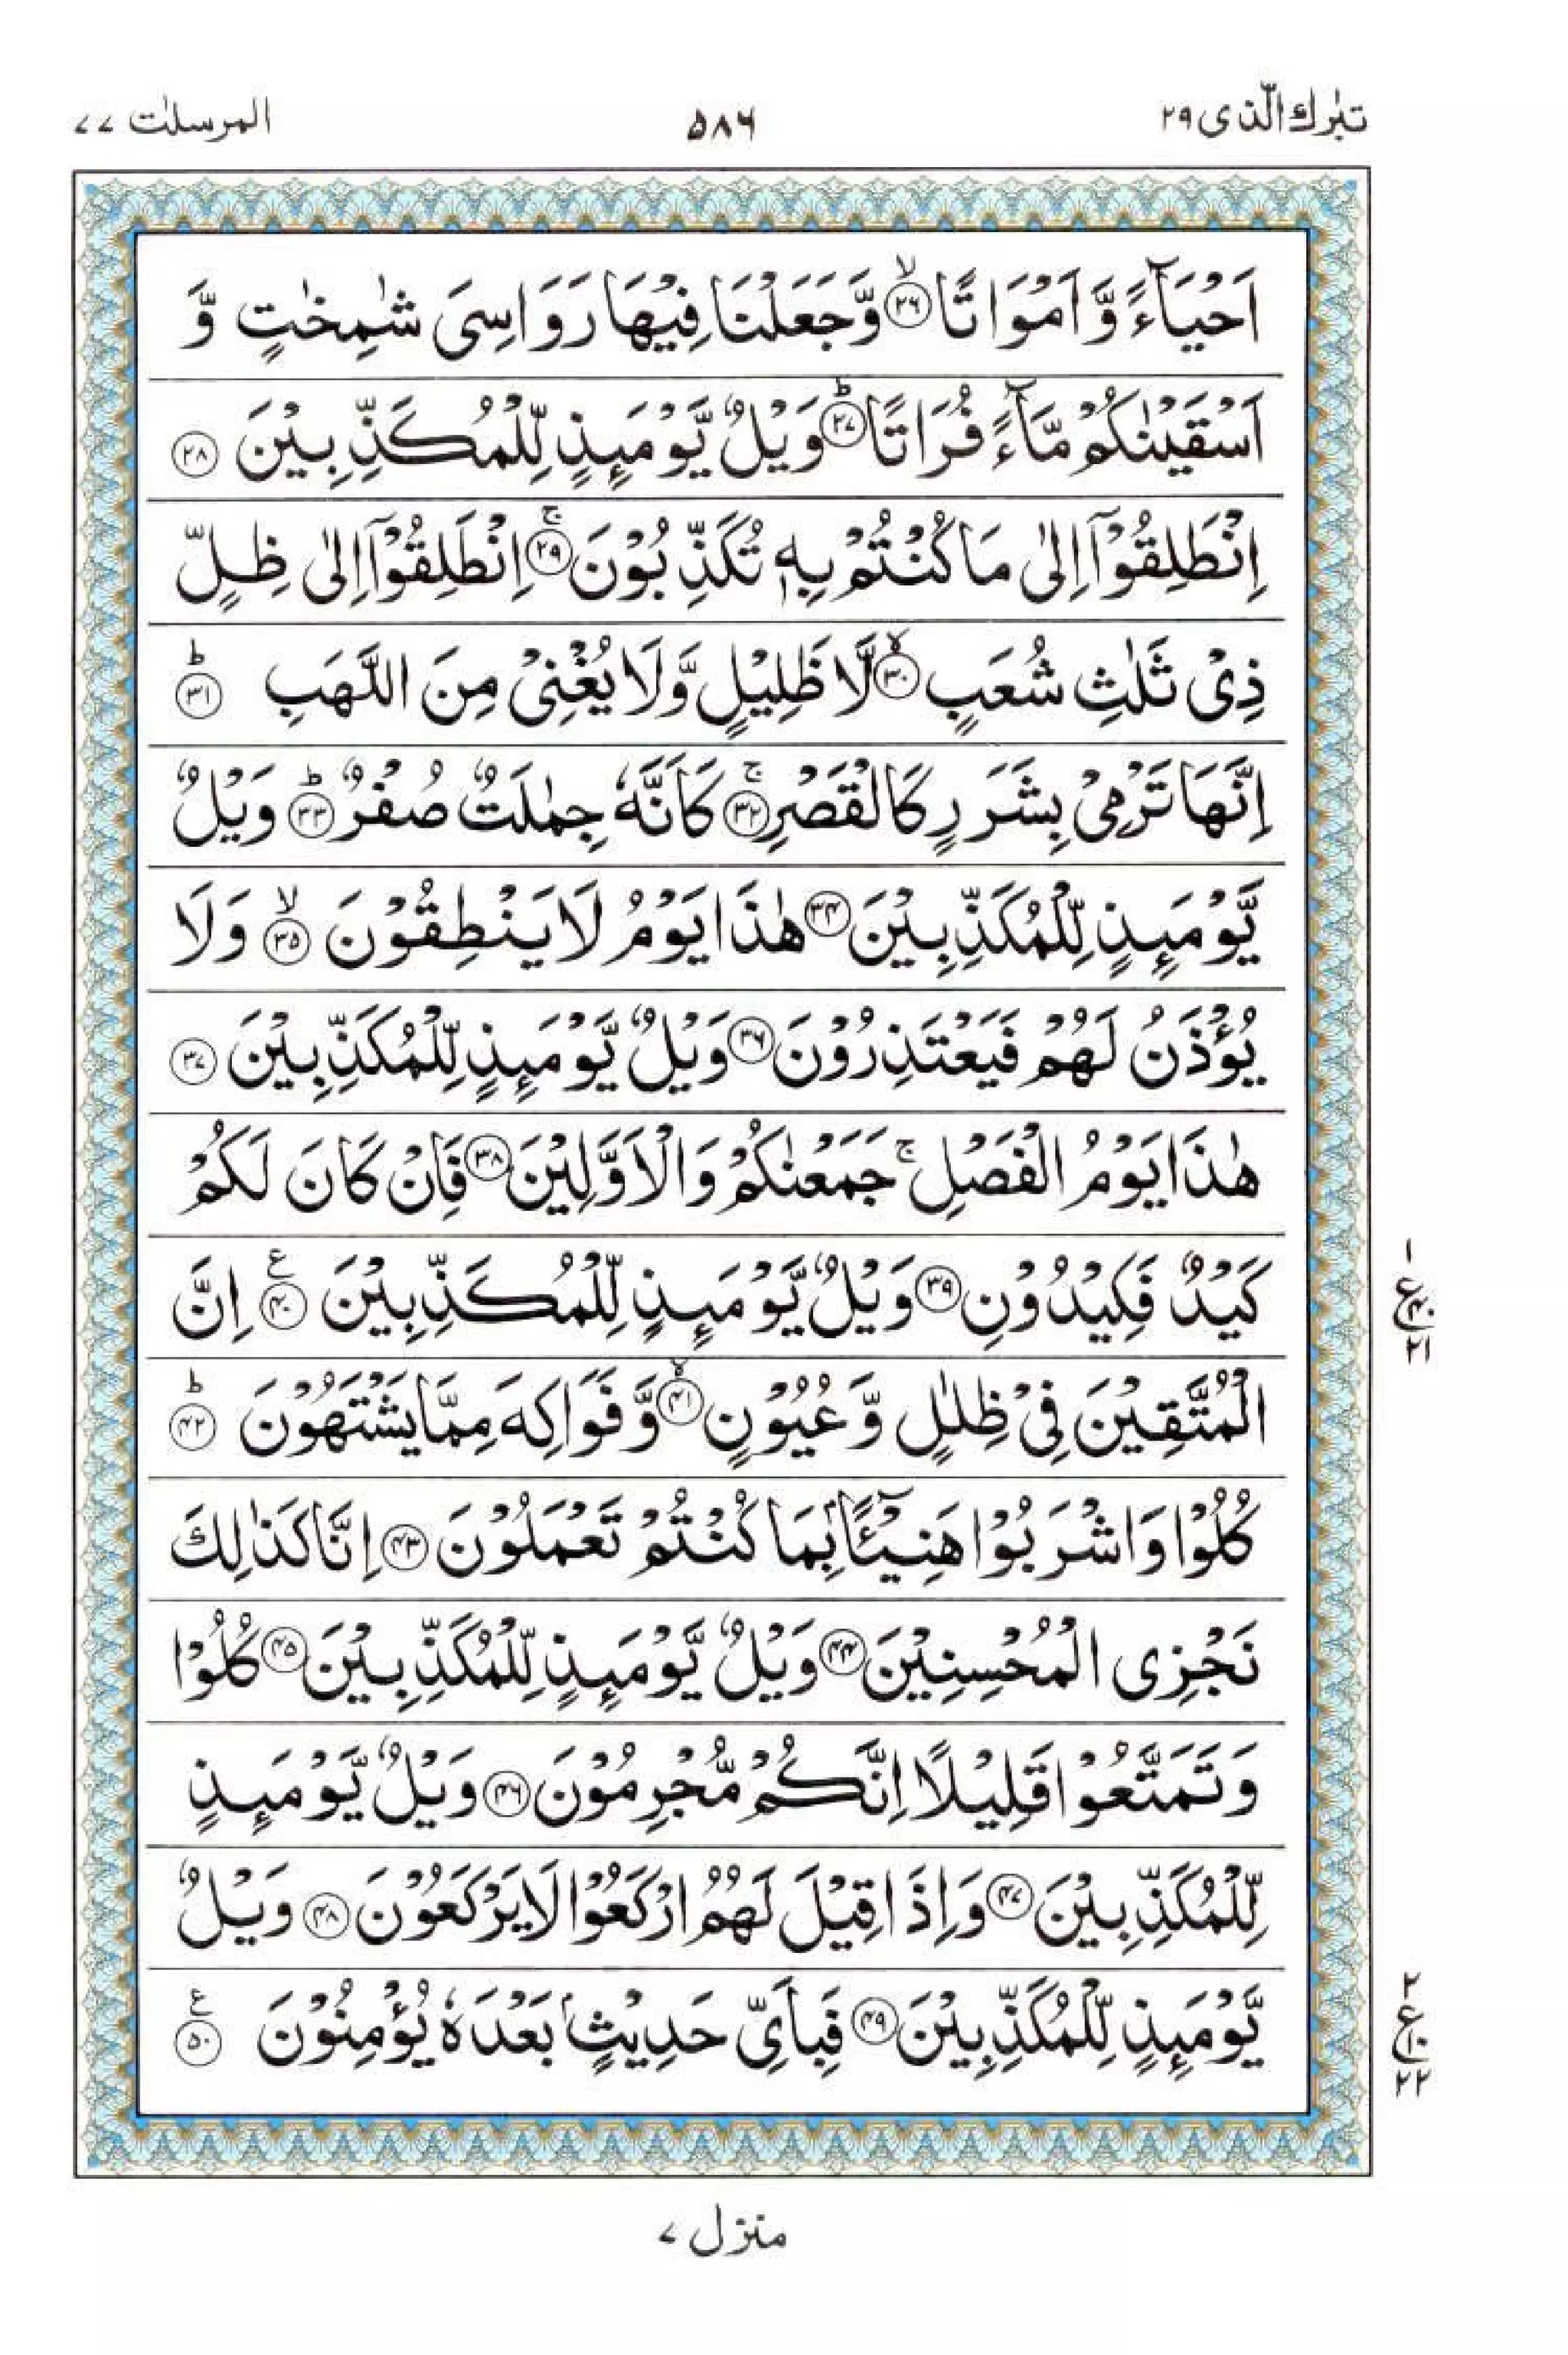 تبٰرك الّذی ۲۹
۵۸۶
المرسلٰت ۷۷
اَحْیَآءً وَّ اَمْوَاتًا ﴿۲۶﴾ۙ وَّ جَعَلْنَا فِیْهَا رَوَاسِیَ شٰمِخٰتٍ وَّ
اَسْقَیْنٰكُمْ مَّآءً فُرَاتًا ﴿۲۷﴾ؕ وَیْلٌ یَّوْمَىِٕذٍ لِّلْمُكَذِّبِیْنَ ﴿۲۸﴾
اِنْطَلِقُوْۤا اِلٰی مَا كُنْتُمْ بِهٖ تُكَذِّبُوْنَ ﴿۲۹﴾ۚ اِنْطَلِقُوْۤا اِلٰی ظِلٍّ
ذِیْ ثَلٰثِ شُعَبٍ ﴿۳۰﴾ۙ لَّا ظَلِیْلٍ وَّ لَا یُغْنِیْ مِنَ اللَّهَبِ ﴿۳۱﴾ؕ
اِنَّهَا تَرْمِیْ بِشَرَرٍ كَالْقَصْرِ ﴿۳۲﴾ۚ كَاَنَّهٗ جِمٰلَتٌ صُفْرٌ ﴿۳۳﴾ؕ وَیْلٌ
یَّوْمَىِٕذٍ لِّلْمُكَذِّبِیْنَ ﴿۳۴﴾ هٰذَا یَوْمُ لَا یَنْطِقُوْنَ ﴿۳۵﴾ۙ وَ لَا
یُؤْذَنُ لَهُمْ فَیَعْتَذِرُوْنَ ﴿۳۶﴾ وَیْلٌ یَّوْمَىِٕذٍ لِّلْمُكَذِّبِیْنَ ﴿۳۷﴾
هٰذَا یَوْمُ الْفَصْلِ ۚ جَمَعْنٰكُمْ وَ الْاَوَّلِیْنَ ﴿۳۸﴾ فَاِنْ كَانَ لَكُمْ
كَیْدٌ فَكِیْدُوْنِ ﴿۳۹﴾ وَیْلٌ یَّوْمَىِٕذٍ لِّلْمُكَذِّبِیْنَ ﴿۴۰﴾ ع اِنَّ
۱ ع ۴۰ ۲۱
الْمُتَّقِیْنَ فِیْ ظِلٰلٍ وَّ عُیُوْنٍ ﴿۴۱﴾ۙ وَّ فَوَاكِهَ مِمَّا یَشْتَهُوْنَ ﴿۴۲﴾ؕ
كُلُوْا وَ اشْرَبُوْا هَنِیْٓـًٔۢا بِمَا كُنْتُمْ تَعْمَلُوْنَ ﴿۴۳﴾ اِنَّا كَذٰلِكَ
نَجْزِی الْمُحْسِنِیْنَ ﴿۴۴﴾ وَیْلٌ یَّوْمَىِٕذٍ لِّلْمُكَذِّبِیْنَ ﴿۴۵﴾ كُلُوْا
وَ تَمَتَّعُوْا قَلِیْلًا اِنَّكُمْ مُّجْرِمُوْنَ ﴿۴۶﴾ وَیْلٌ یَّوْمَىِٕذٍ
لِّلْمُكَذِّبِیْنَ ﴿۴۷﴾ وَ اِذَا قِیْلَ لَهُمُ ارْكَعُوْا لَا یَرْكَعُوْنَ ﴿۴۸﴾ وَیْلٌ
یَّوْمَىِٕذٍ لِّلْمُكَذِّبِیْنَ ﴿۴۹﴾ فَبِاَیِّ حَدِیْثٍۭ بَعْدَهٗ یُؤْمِنُوْنَ ﴿۵۰﴾ ع
۲ ع ۱۰ ۲۲
منزل ۷